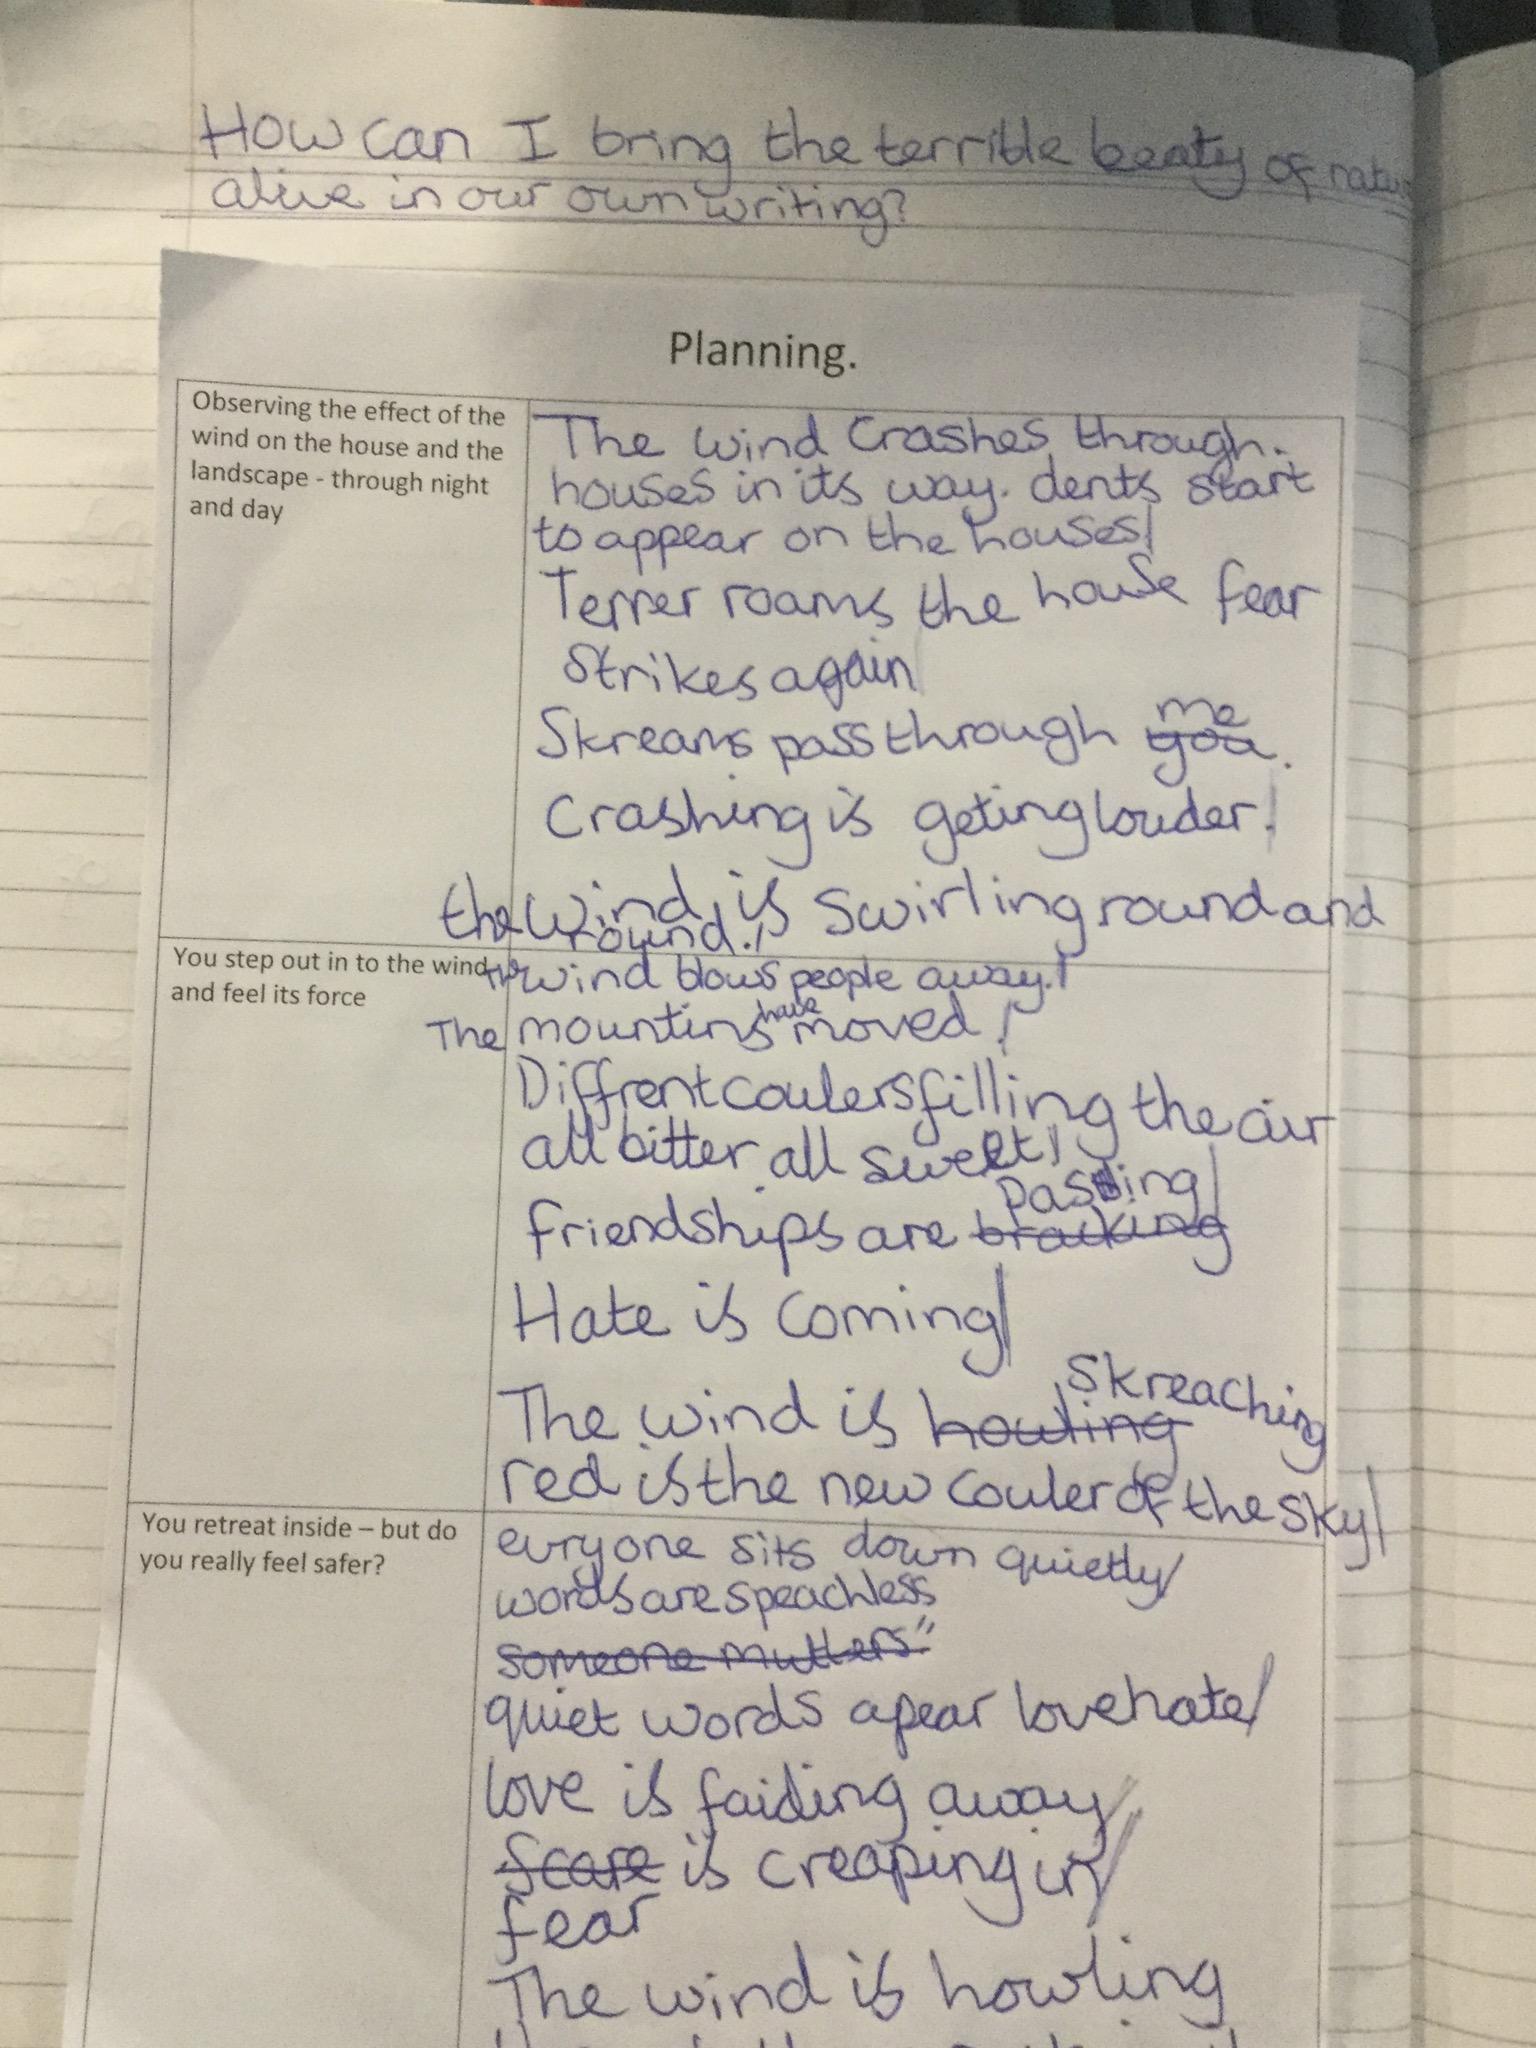 How can I bring the terrible beaty of natu
alive in our own writing?
Planning.
Observing the effect of the
wind on the house and the
landscape - through night
and day
The wind Crashes through.
houses in its way. dents start
to appear on the houses/
Terrer roams the house fear
Strikes again
Skreams pass through me
you.
Crashing is geting louder./
the wind is swirling round and
round./
You step out in to the wind
and feel its force
The wind blows people away./
The mountins have moved /
Diffrent coulers filling the air
all bitter all sweet/
passing/
friendships are bracking
Hate is coming/
Skreaching
The wind is howling
red is the new Couler of the sky/
You retreat inside – but do
you really feel safer?
evryone sits down quietly/
words are speachless
someone mutters"
quiet words apear love hate/
love is faiding away/
Scare is creaping in/
fear
The wind is howling